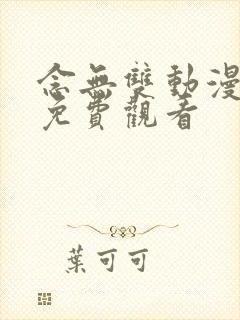 念無雙動漫
免費觀看
葉可可